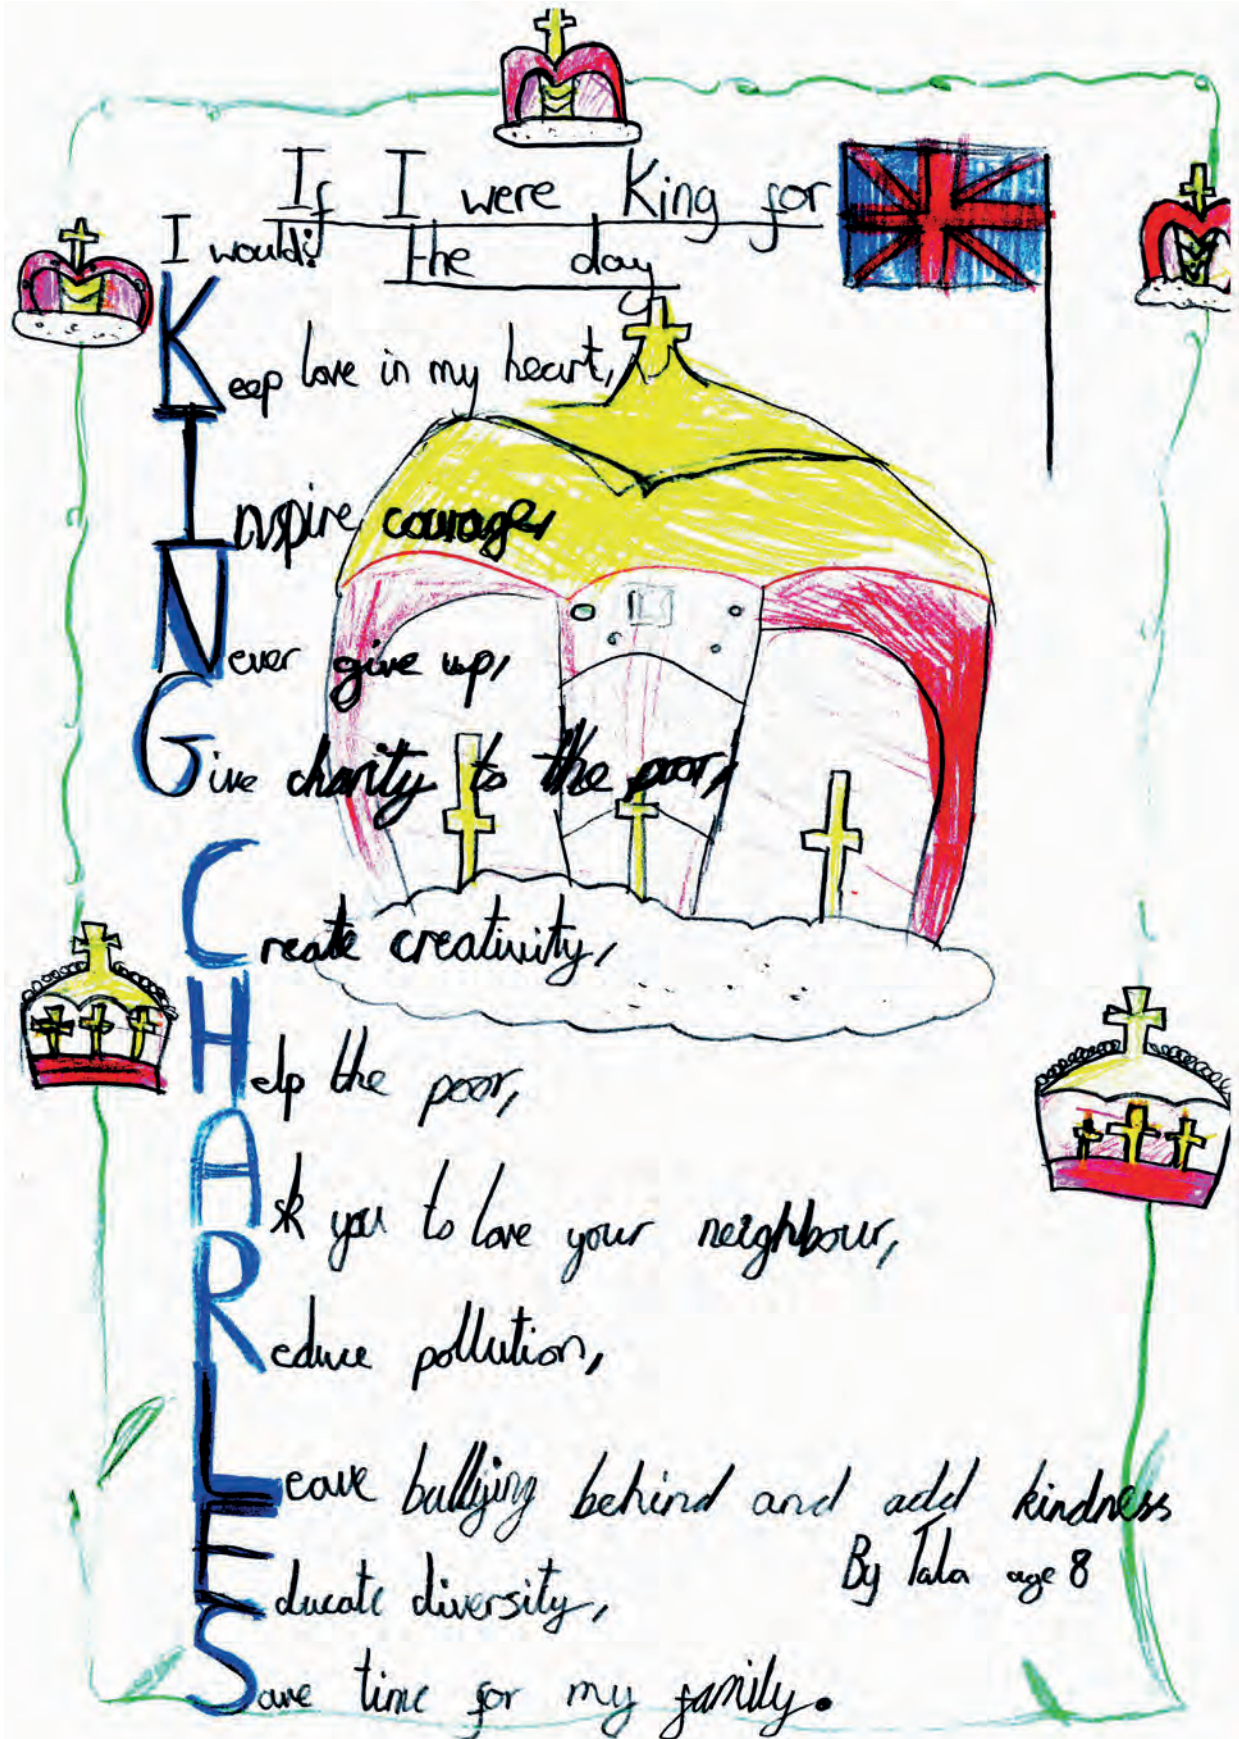 If I were King for
the day
I would:
Keep love in my heart,
Inspire courage,
Never give up,
Give charity to the poor,
Create creativity,
Help the poor,
Ask you to love your neighbour,
Reduce pollution,
Leave bullying behind and add kindness
By Tala age 8
Educate diversity,
Save time for my family.